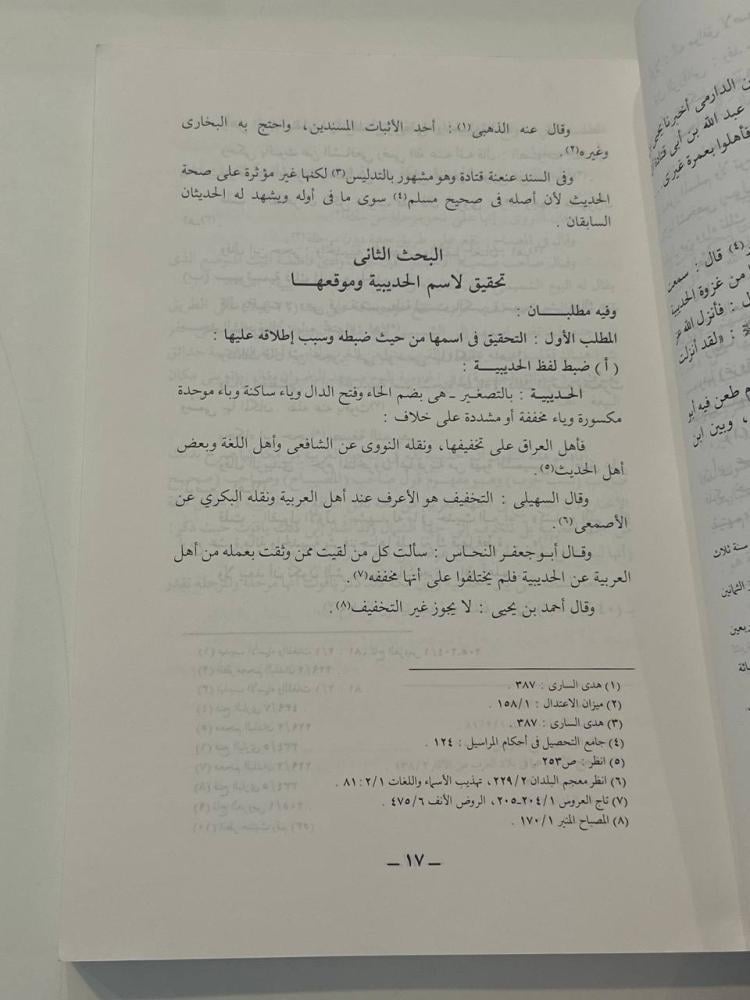 وقال عنه الذهبى(١) : أحد الأثبات المسندين، واحتج به البخارى
وغيره(٢).
وفى السند عنعنة قتادة وهو مشهور بالتدليس(٣) لكنها غير مؤثرة على صحة
الحديث لأن أصله فى صحيح مسلم(٤) سوى ما فى أوله ويشهد له الحديثان
السابقان .
البحث الثانى
تحقيق لاسم الحديبية وموقعهـــا
وفيه مطلبـــــان :
المطلب الأول : التحقيق فى اسمها من حيث ضبطه وسبب إطلاقه عليها :
( أ ) ضبط لفظ الحديبيـــة :
الحـديبيـة : بالتصغير ـ هى بضم الحاء وفتح الدال وياء ساكنة وباء موحدة
مكسورة وياء مخففة أو مشددة على خلاف :
فأهل العراق على تخفيفها، ونقله النووى عن الشافعى وأهل اللغة وبعض
أهل الحديث(٥).
وقال السهيلى : التخفيف هو الأعرف عند أهل العربية ونقله البكري عن
الأصمعى(٦).
وقـال أبـو جعفـر النحـاس : سألت كل من لقيت ممن وثقت بعمله من أهل
العربية عن الحديبية فلم يختلفوا على أنها مخففه(٧).
وقال أحمد بن يحيى : لا يجوز غير التخفيف(٨).
(١) هدى السارى : ٣٨٧ .
(٢) ميزان الاعتدال : ١٥٨/١ .
(٣) هدى السارى : ٣٨٧ .
(٤) جامع التحصيل فى أحكام المراسيل : ١٢٤ .
(٥) انظر : ص٢٥٣
(٦) انظر معجم البلدان ٢٢٩/٢، تهذيب الأسماء واللغات ٨١ : ٢/١ .
(٧) تاج العروس ٢٠٤/١ـ٢٠٥، الروض الأنف ٤٧٥/٦ .
(٨) المصباح المنير ١٧٠/١ .
ـ ١٧ ـ
ن الدارمى أخبرنا يحيى
عبد الله بن أبى قتادة
فأهلوا بعمرة غيرى.
(٤) قال : سمعت
من غزوة الحديبية
ل : فأنزل الله
: «لقد أنزلت
م طعن فيه أبو
، وبين ابن
سنة ثلاث
الثمانين